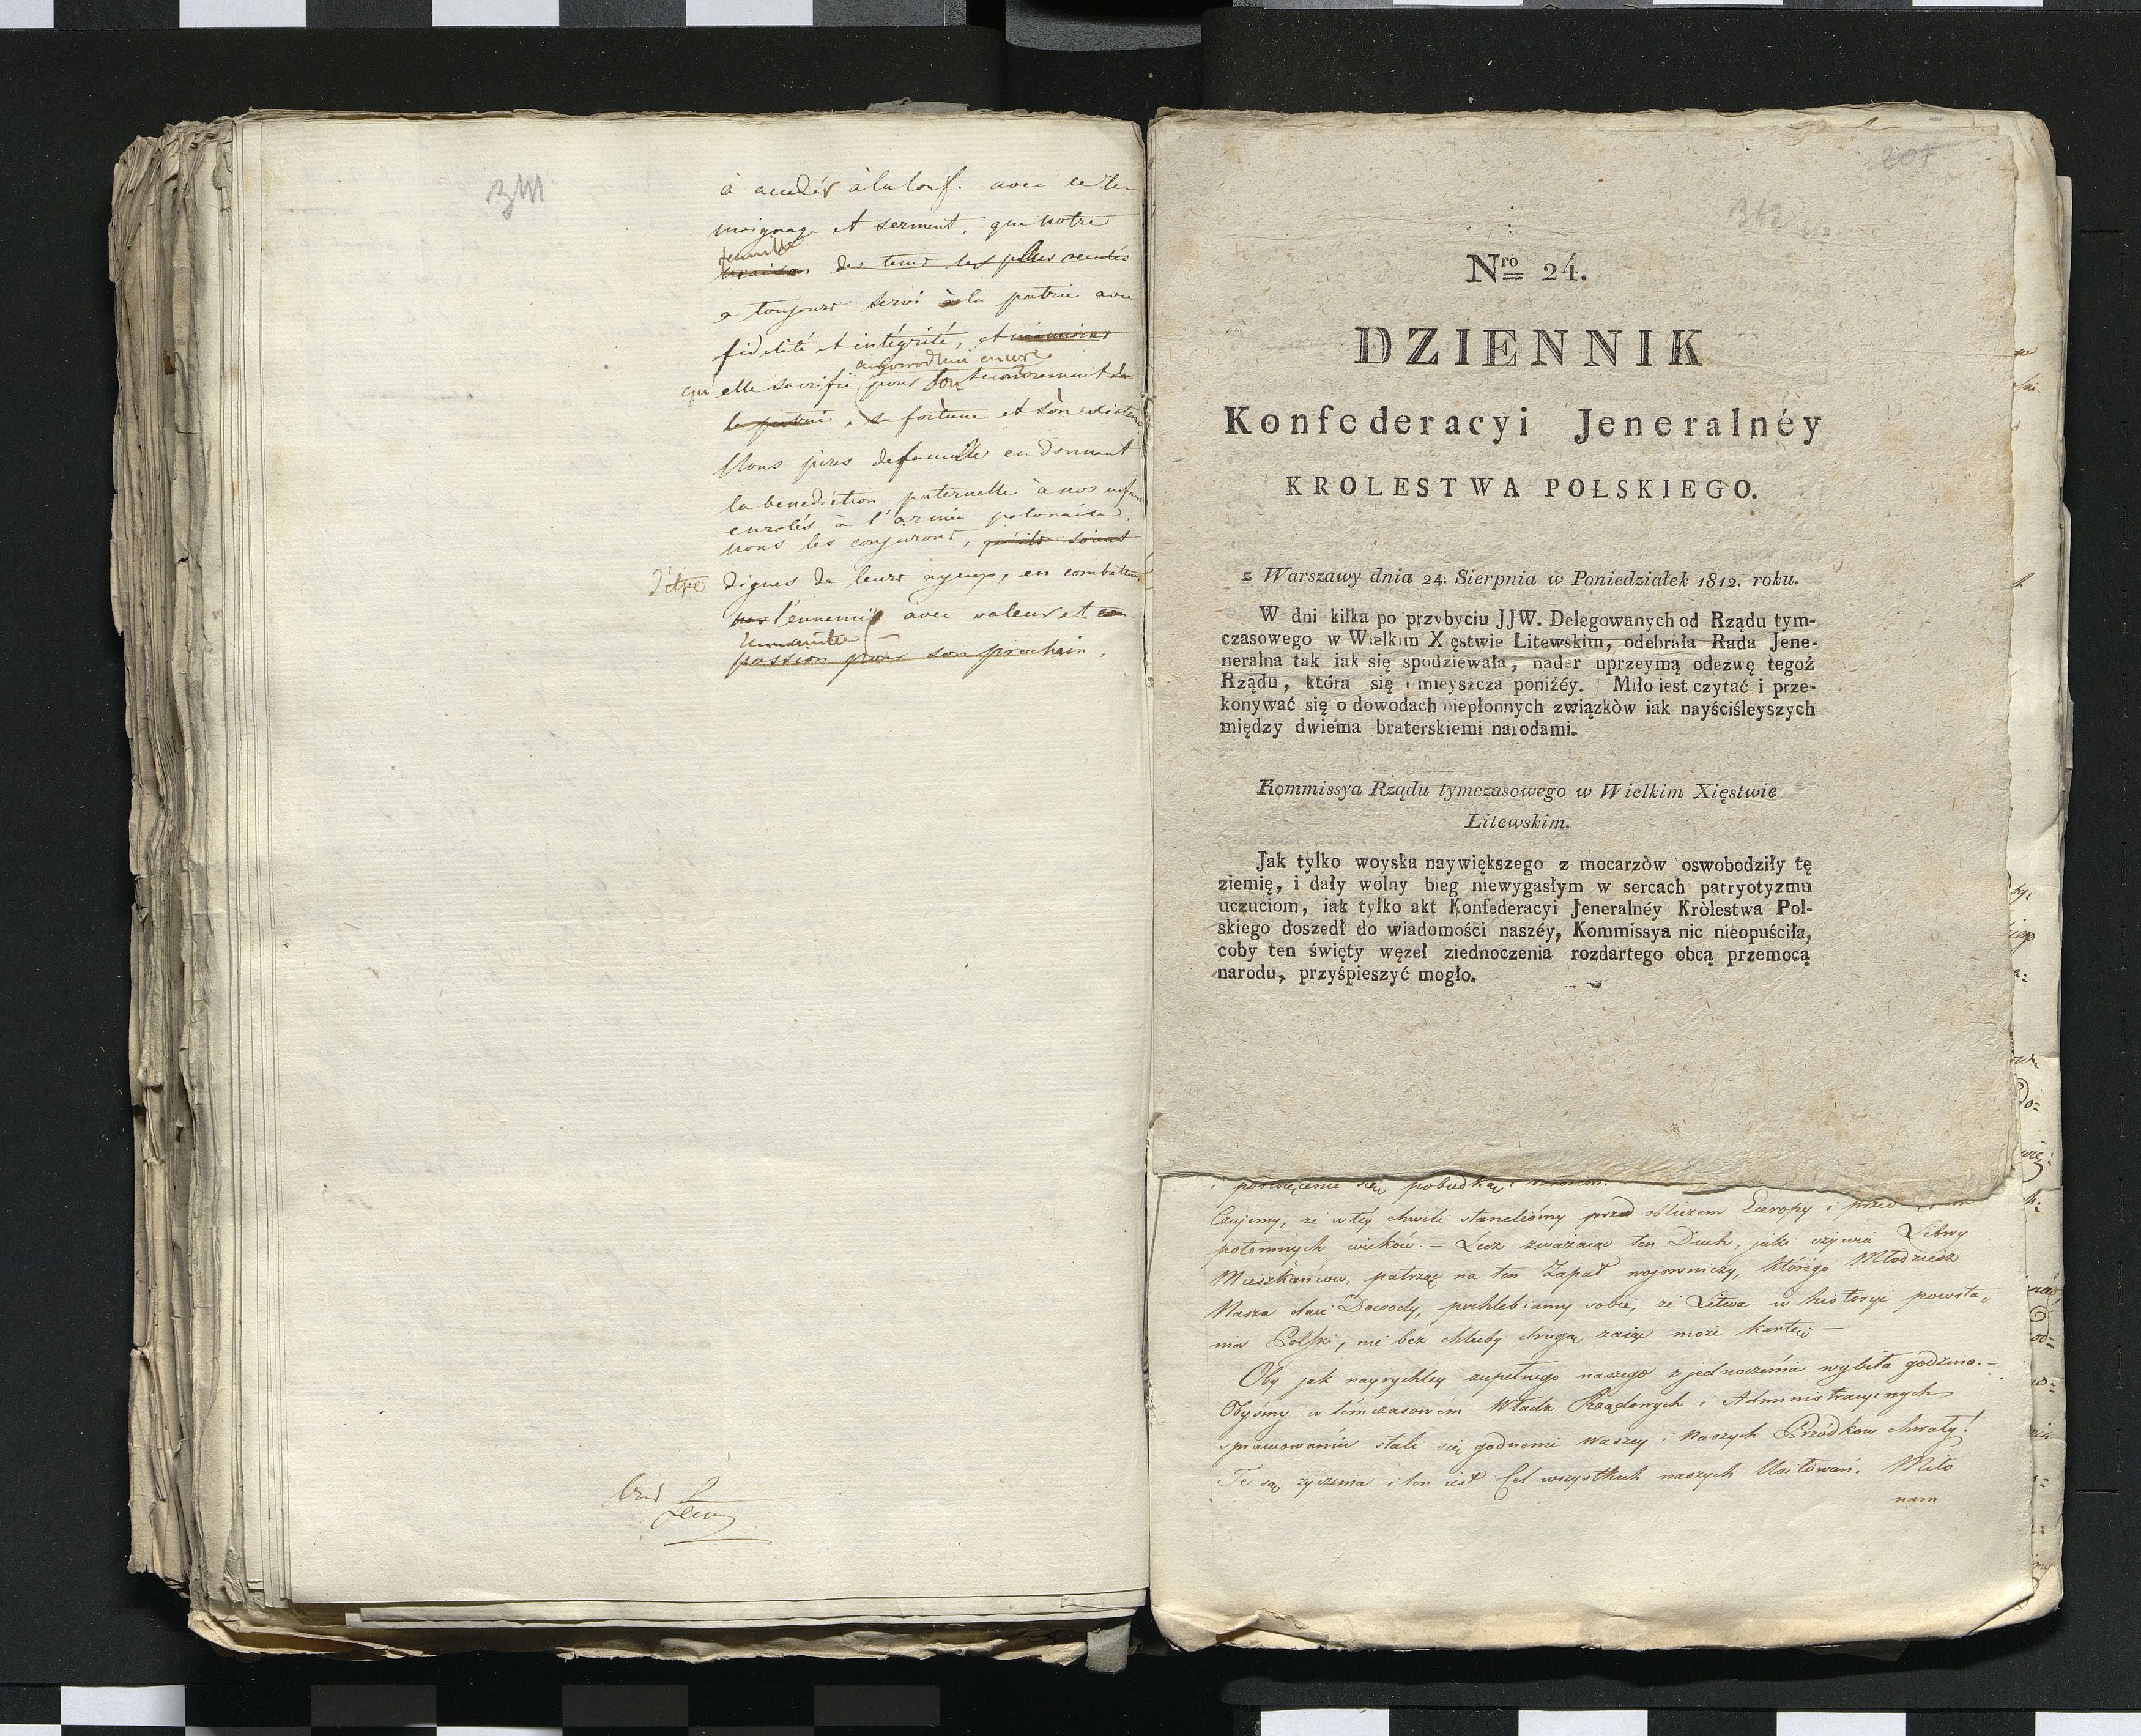 311
à accedér à la Conf. avec ce te-
moignage et serment, que notre
famille
maison des tems les plus reculés
a toujours servi à la patrie avec
fidelité et intégrité, et
aujourdhui encore
qu'elle sacrifie pour son recouvrement de
la patrie, sa fortune et son existence
Nous péres de famille en donnant
la benediction paternelle à nos enfans
enrolés à l'armée polonaise,
nous les conjurons, qu'ils soient
d'être dignes de leurs ayeux, en combattant
l'ennemi avec valeur et
humanitée
passion pour son prochain.
207
312
Nro 24.
DZIENNIK
Konfederacyi Jeneralnéy
KROLESTWA POLSKIEGO.
z Warszawy dnia 24. Sierpnia w Poniedziałek 1812. roku.
W dni kilka po przybyciu JJW. Delegowanych od Rządu tym-
czasowego w Wielkim X ęstwie Litewskim, odebrała Rada Jene-
neralna tak iak się spodziewała, nader uprzeymą odezwę tegoż
Rządu, która się i mieyszcza poniżéy. Miło iest czytać i prze-
konywać się o dowodach niepłonnych związkòw iak nayściśleyszych
między dwiéma braterskiemi narodami.
Kommissya Rządu tymczasowego w Wielkim Xięstwie
Litewskim.
Jak tylko woyska naywiększego z mocarzòw oswobodziły tę
ziemię, i dały wolny bieg niewygasłym w sercach patryotyzmu
uczuciom, iak tylko akt Konfederacyi Jeneralnéy Kròlestwa Pol-
skiego doszedł do wiadomości naszéy, Kommissya nic nieopuściła,
coby ten święty węzeł ziednoczenia rozdartego obcą przemocą
narodu, przyśpieszyć mogło.
i poświęcenie się pobudką
Czujemy, ze w téy chwili staneliśmy przed obliczem Europy i przed
potomnych wieków. – Lecz zważaiąc ten Duch, jaki ożywia Litwy
Mieszkańcow, patrząc na ten Zapał wojowniczy, którégo Młodzież
Nasza daie Dowody, pochlebiamy sobie, ze Litwa w historyi powsta,
nia Polski, nie bez chluby drugą zaiąć może kartę –
Oby jak nayrychley zupełnego naszego zjednoczénia wybiła godzina. –
Obyśmy w témczasowém Władz Rządowych i Administracyinych
sprawowaniu stali się godnemi Waszey i Naszych Przódkow chwały!
Te są życzenia i ten iest Cel wszystkich naszych Usiłowań. Miło
nam